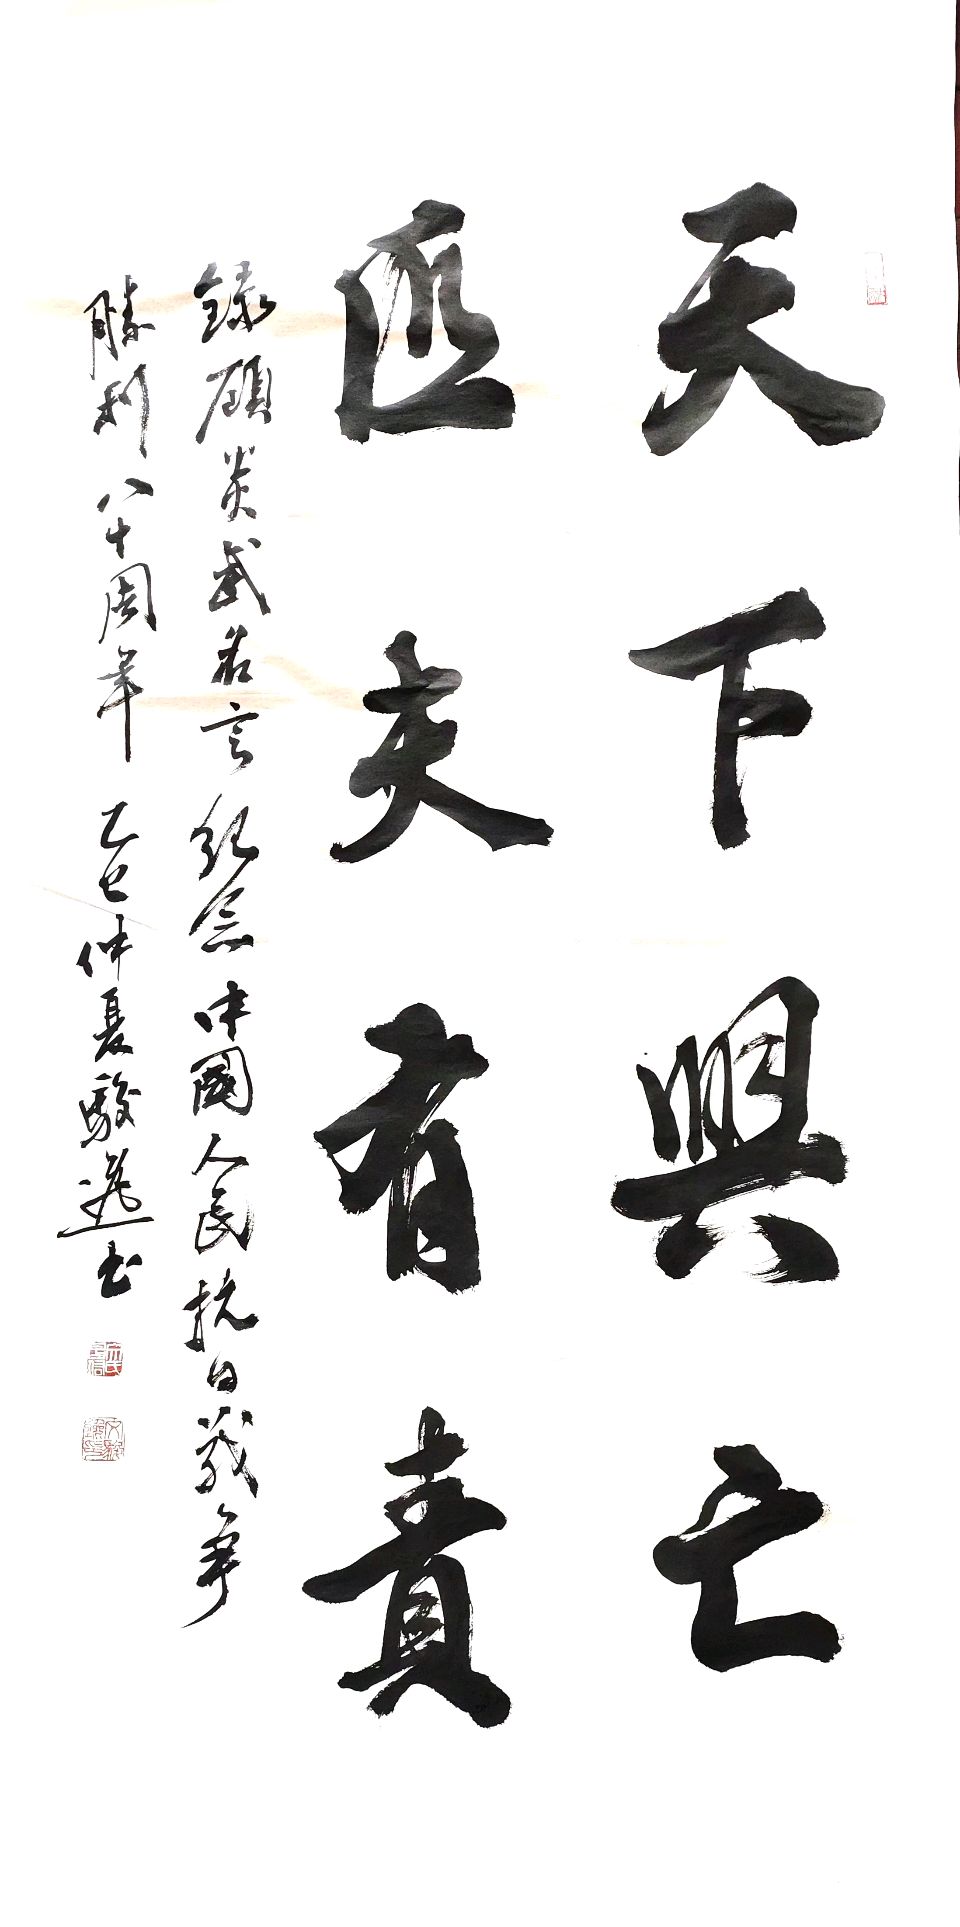 天下興亡
匹夫有責
錄顧炎武名言 紀念中國人民抗日戰爭
勝利八十周年 乙巳仲夏駿選書